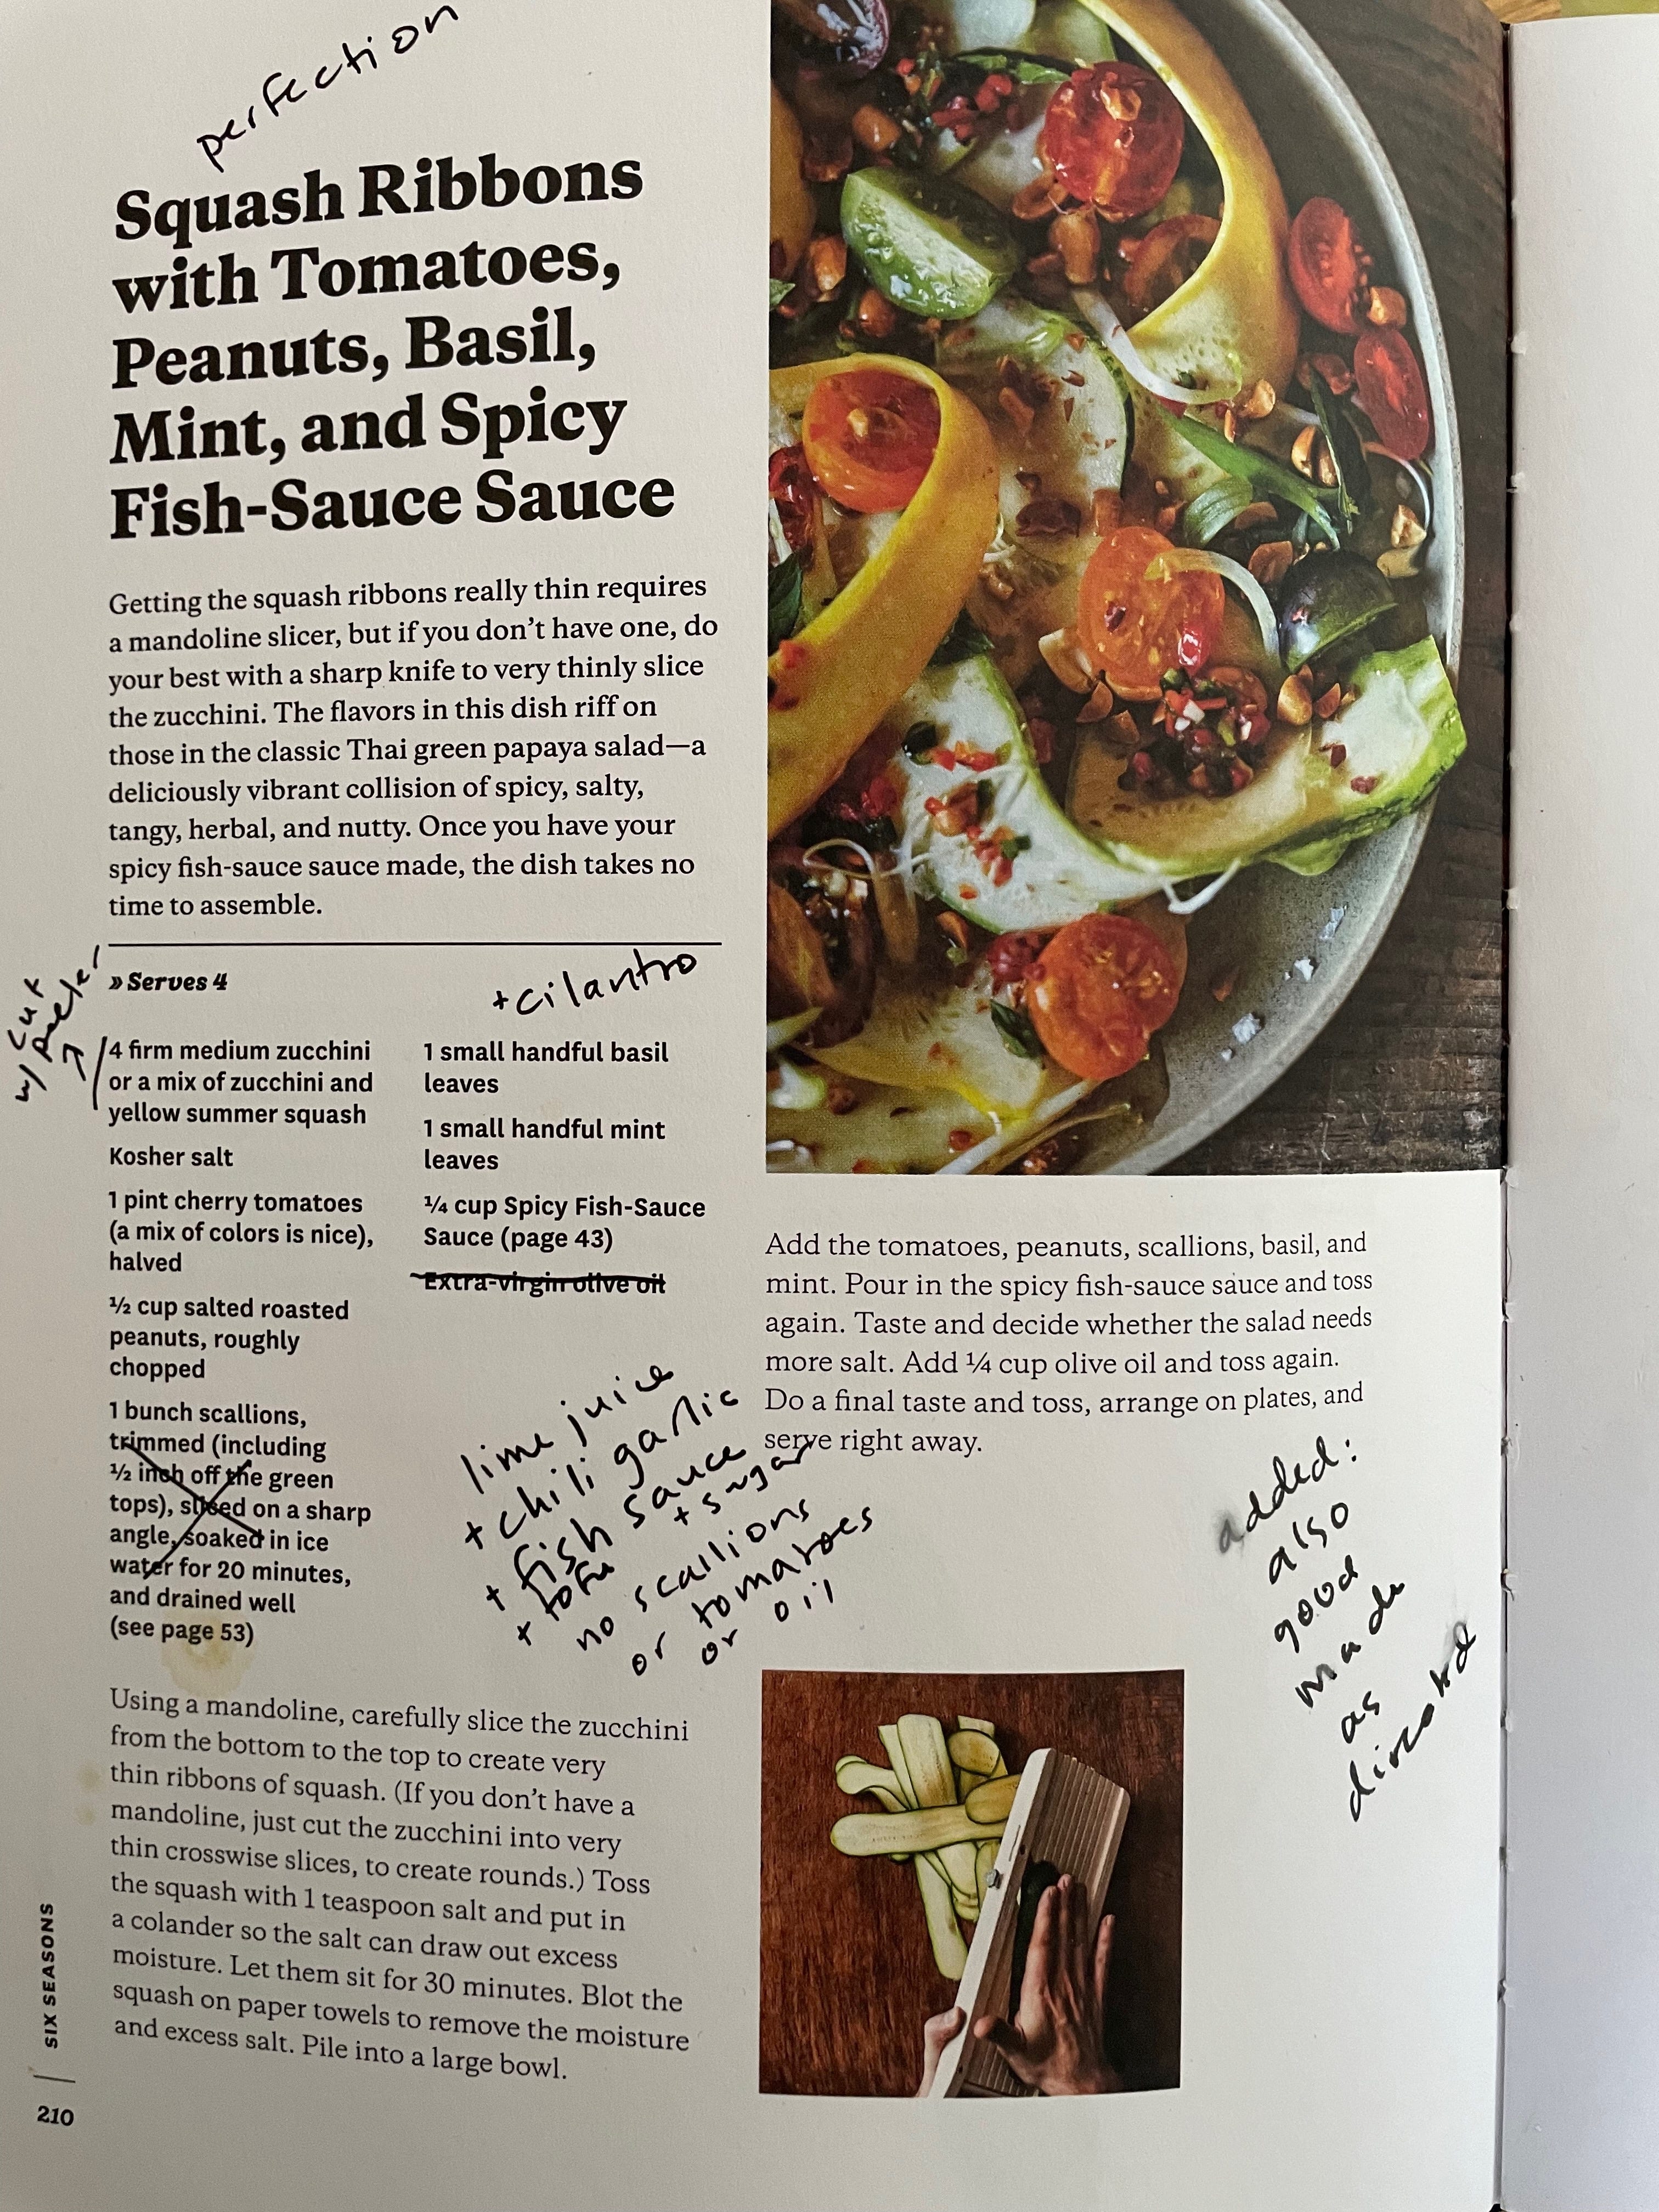 perfection
Squash Ribbons
with Tomatoes,
Peanuts, Basil,
Mint, and Spicy
Fish-Sauce Sauce
Getting the squash ribbons really thin requires
a mandoline slicer, but if you don’t have one, do
your best with a sharp knife to very thinly slice
the zucchini. The flavors in this dish riff on
those in the classic Thai green papaya salad—a
deliciously vibrant collision of spicy, salty,
tangy, herbal, and nutty. Once you have your
spicy fish-sauce sauce made, the dish takes no
time to assemble.
» Serves 4
cut
w/ peeler
4 firm medium zucchini
or a mix of zucchini and
yellow summer squash
Kosher salt
1 pint cherry tomatoes
(a mix of colors is nice),
halved
½ cup salted roasted
peanuts, roughly
chopped
1 bunch scallions,
trimmed (including
½ inch off the green
tops), sliced on a sharp
angle, soaked in ice
water for 20 minutes,
and drained well
(see page 53)
+cilantro
1 small handful basil
leaves
1 small handful mint
leaves
¼ cup Spicy Fish-Sauce
Sauce (page 43)
Extra-virgin olive oil
lime juice
+ chili garlic
+ fish sauce
+ sugar
+ tofu
no scallions
or tomatoes
or oil
Using a mandoline, carefully slice the zucchini
from the bottom to the top to create very
thin ribbons of squash. (If you don’t have a
mandoline, just cut the zucchini into very
thin crosswise slices, to create rounds.) Toss
the squash with 1 teaspoon salt and put in
a colander so the salt can draw out excess
moisture. Let them sit for 30 minutes. Blot the
squash on paper towels to remove the moisture
and excess salt. Pile into a large bowl.
Add the tomatoes, peanuts, scallions, basil, and
mint. Pour in the spicy fish-sauce sauce and toss
again. Taste and decide whether the salad needs
more salt. Add ¼ cup olive oil and toss again.
Do a final taste and toss, arrange on plates, and
serve right away.
added:
also
good
made
as
directed
SIX SEASONS
210